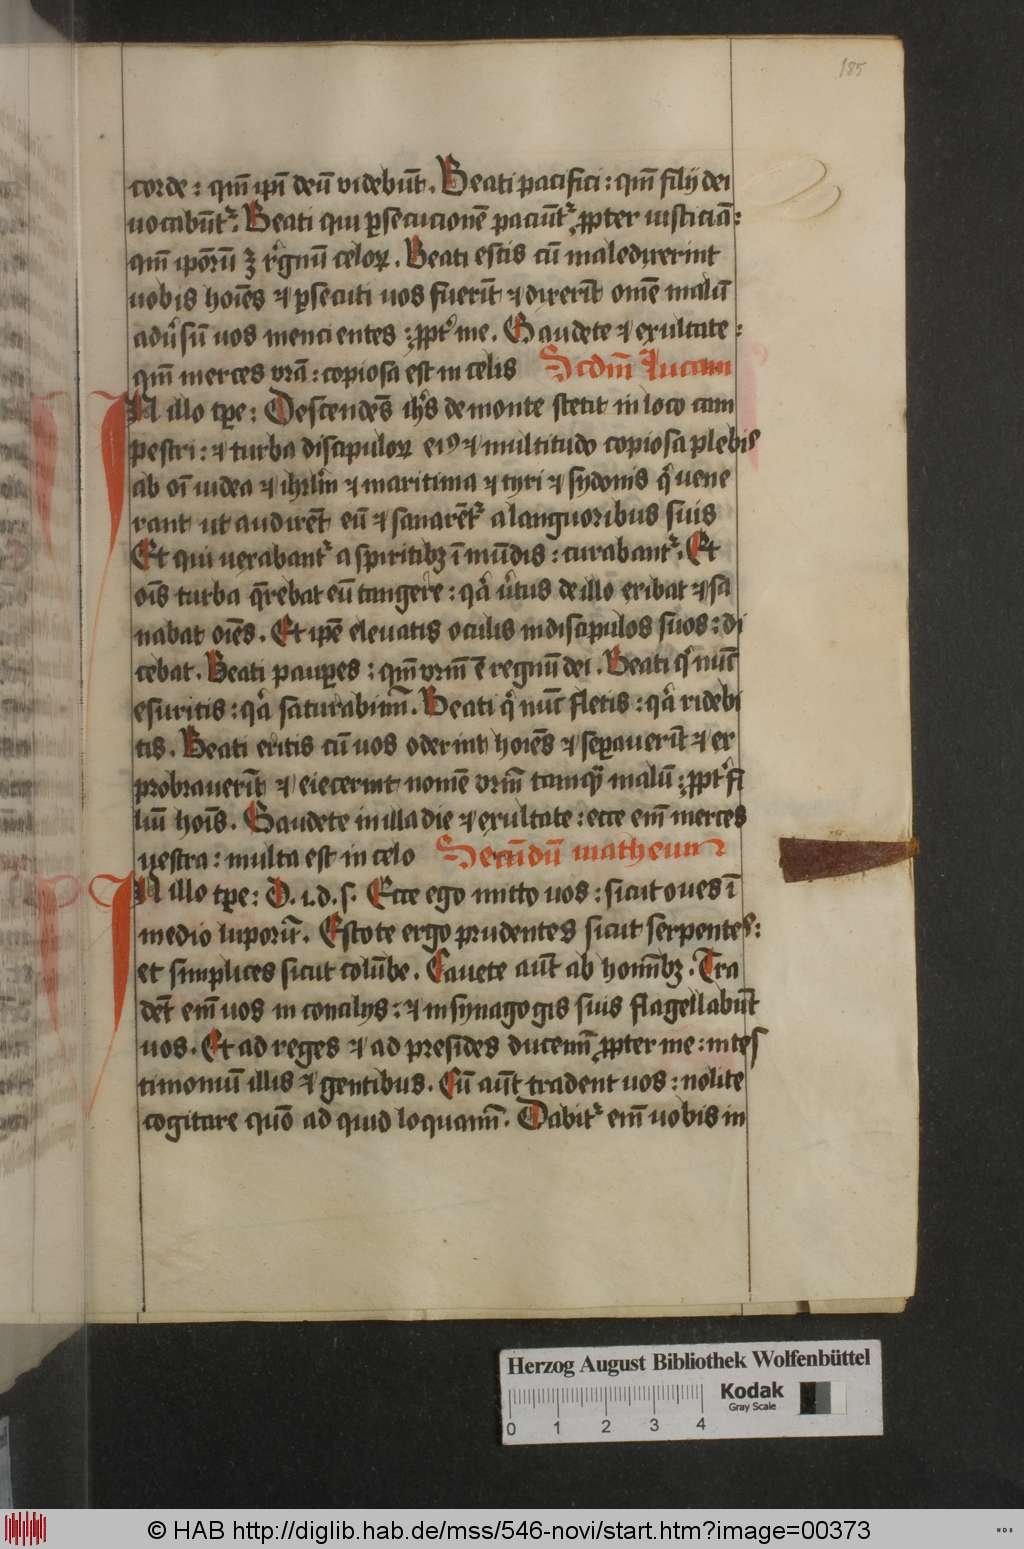 185
corde: qm̄ ip̄i deū videbūt. Beati pacifici: qm̄ filij dei
uocabūtᷣ. Beati qui ꝑsecucionē paciūtᷣ ꝓpter iusticiā:
qm̄ ipōrū ꝫ rᷣgnū celoꝝ. Beati estis cū maledixerint
uobis hoīes ⁊ ꝑsecuti uos fuerīt ⁊ dixerīt omē malū
adūsū uos mencientes: ꝓptᷣ me. Gaudete ⁊ exultate:
qm̄ merces vrā: copiosa est in celis Scdm̄ Lucam
IN illo tpe: Descendēs ihs̄ de monte stetit in loco cam
pestri: ⁊ turba discipuloꝝ eiꝯ ⁊ multitudo copiosa plebis
ab oī iudea ⁊ ihrlm̄ ⁊ maritima ⁊ tyri ⁊ sydonis qͥ uene
rant ut audirēt eū ⁊ sanarētᷣ a languoribus suis
Et qui uexabantᷣ a spiritibꝫ ī mūdis: curabantᷣ. Et
oīs turba q̄rebat eū tangere: qͣ uͥtus de illo exibat ⁊ sa
nabat oīes. Et ipē eleuatis oculis in discipulos suos: di
cebat. Beati pauꝑes: qm̄ vrm̄ ē regnū dei. Beati qͥ nūc
esuritis: qͣ saturabim̄. Beati qͥ nūc fletis: qͣ ridebi
tis. Beati eritis cū uos oderint hoīes ⁊ seꝑauerīt ⁊ ex
probrauerīt ⁊ eiecerint nomē vrm̄ tamqͣ malū: ꝓptᷣ fi
liū hoīs. Gaudete in illa die ⁊ exultate: ecce em̄ merces
uestra: multa est in celo Secūdū matheum
IN illo tpe: D. i. d. s. Ecce ego mitto uos: sicut oues ī
medio luporū. Estote ergo prudentes sicut serpentes:
et simplices sicut colūbe. Cauete aūt ab homībꝫ. Tra
dēt em̄ uos in concilijs: ⁊ in synagogis suis flagellabūt
uos. Et ad reges ⁊ ad presides ducemī ꝓpter me: in tes
timoniū illis ⁊ gentibus. Cū aūt tradent uos: nolite
cogitare quō ad quid loquamī. Dabitᷣ em̄ uobis in
Herzog August Bibliothek Wolfenbüttel
Kodak
Gray Scale
0 1 2 3 4
© HAB http://diglib.hab.de/mss/546-novi/start.htm?image=00373